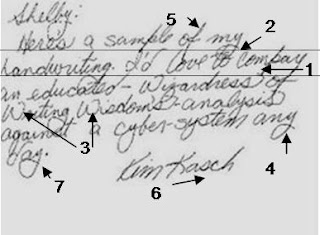 Shelby: 5
Here's a sample of my 2
handwriting. I'd love to compare 1
an educated - Wizardress of
Writing Wisdoms - analysis
against a cyber-system any
day. 3 4
7 Kim Kasch
6